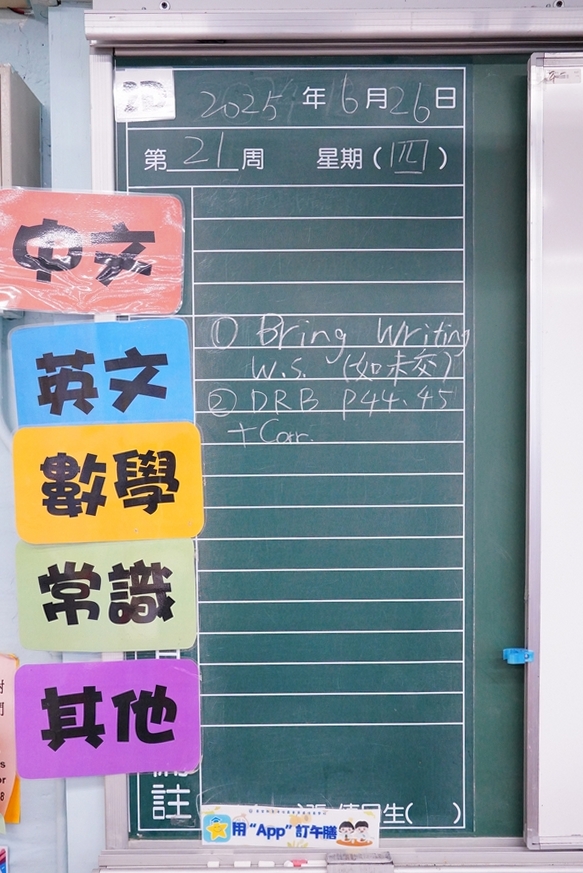 2025年6月26日
第21周 星期(四)
中文
英文
① Bring Writing
W.S. (如未交)
② DRB P44.45
+Corr.
數學
常識
其他
註
生( )
用“App”訂午膳